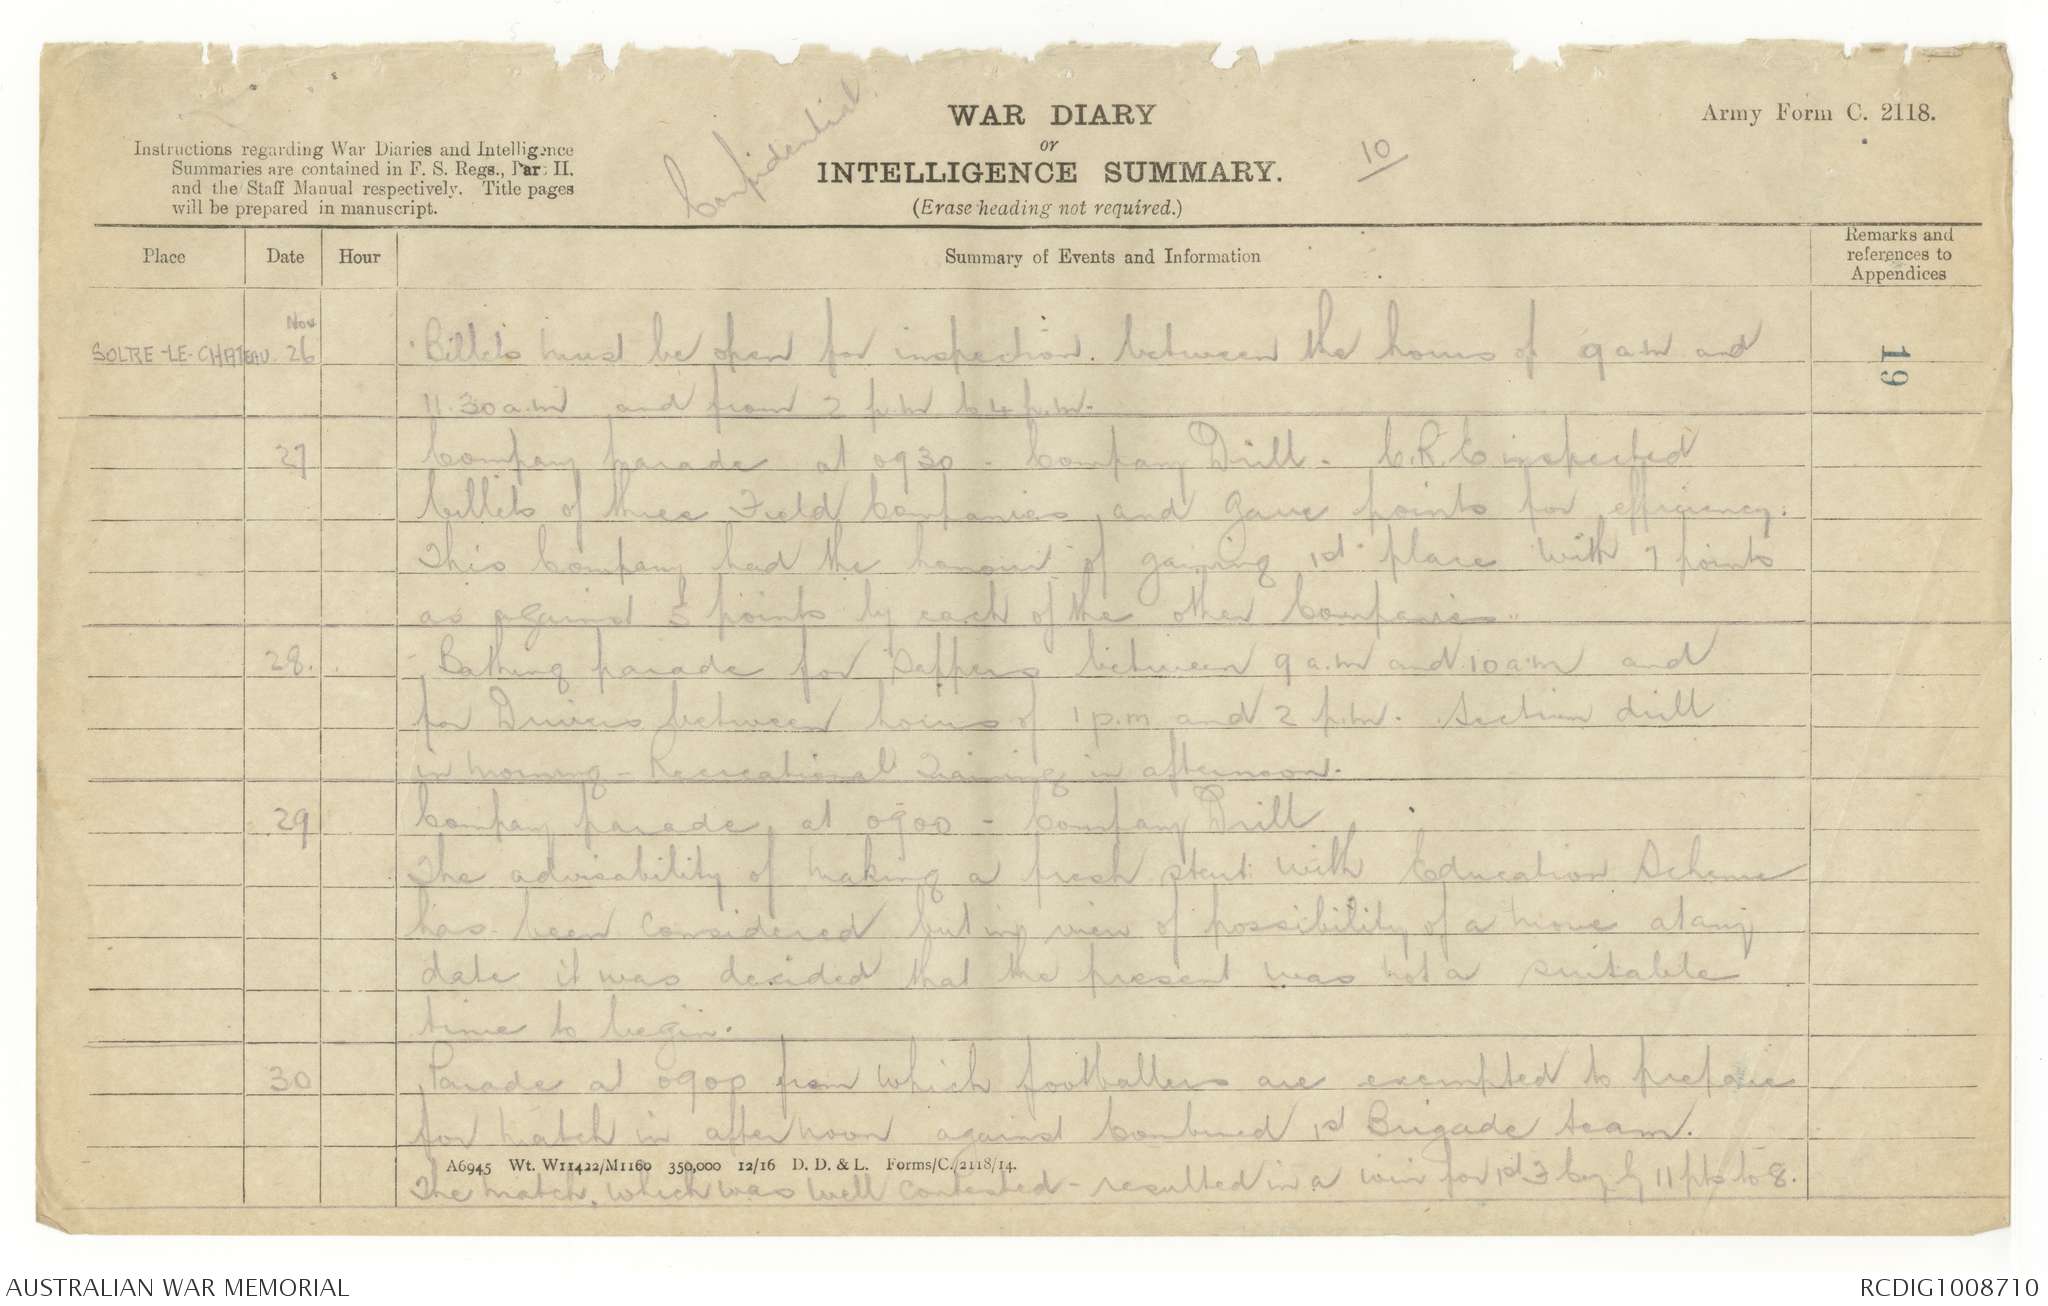 Confidential.
WAR DIARY
or
INTELLIGENCE SUMMARY.
(Erase heading not required.)
10
Army Form C. 2118.
Instructions regarding War Diaries and Intelligence
Summaries are contained in F. S. Regs., Part II.
and the Staff Manual respectively. Title pages
will be prepared in manuscript.
Place Date Hour Summary of Events and Information Remarks and references to Appendices
19
Nov
SOLRE-LE-CHATEAU. 26 Billets must be open for inspection. between the hours of 9 a.m and
11.30 a.m and from 2 p.m to 4 p.m.
27 Company parade at 0930 - Company Drill - C.R.E inspected
billets of three Field Companies and gave points for efficiency.
This Company had the honour of gaining 1st place with 7 points
as against 5 points by each of the other Companies.
28. Bathing parade for Sappers between 9 a.m and 10 a.m and
for Drivers between hours of 1 p.m and 2 p.m. Section drill
in morning - Recreational Training in afternoon.
29 Company parade at 0900 - Company Drill
The advisability of making a fresh start with Education Scheme
has been considered but in view of possibility of a move at any
date it was decided that the present was not a suitable
time to begin.
30 Parade at 0900 from which footballers are exempted to prepare
for match in afternoon against Combined 1st Brigade team.
A6945 Wt. W11422/M1160 350,000 12/16 D. D. & L. Forms/C./2118/14.
The match, which was well contested - resulted in a win for 1st F Coy by 11 pts to 8.
AUSTRALIAN WAR MEMORIAL
RCDIG1008710